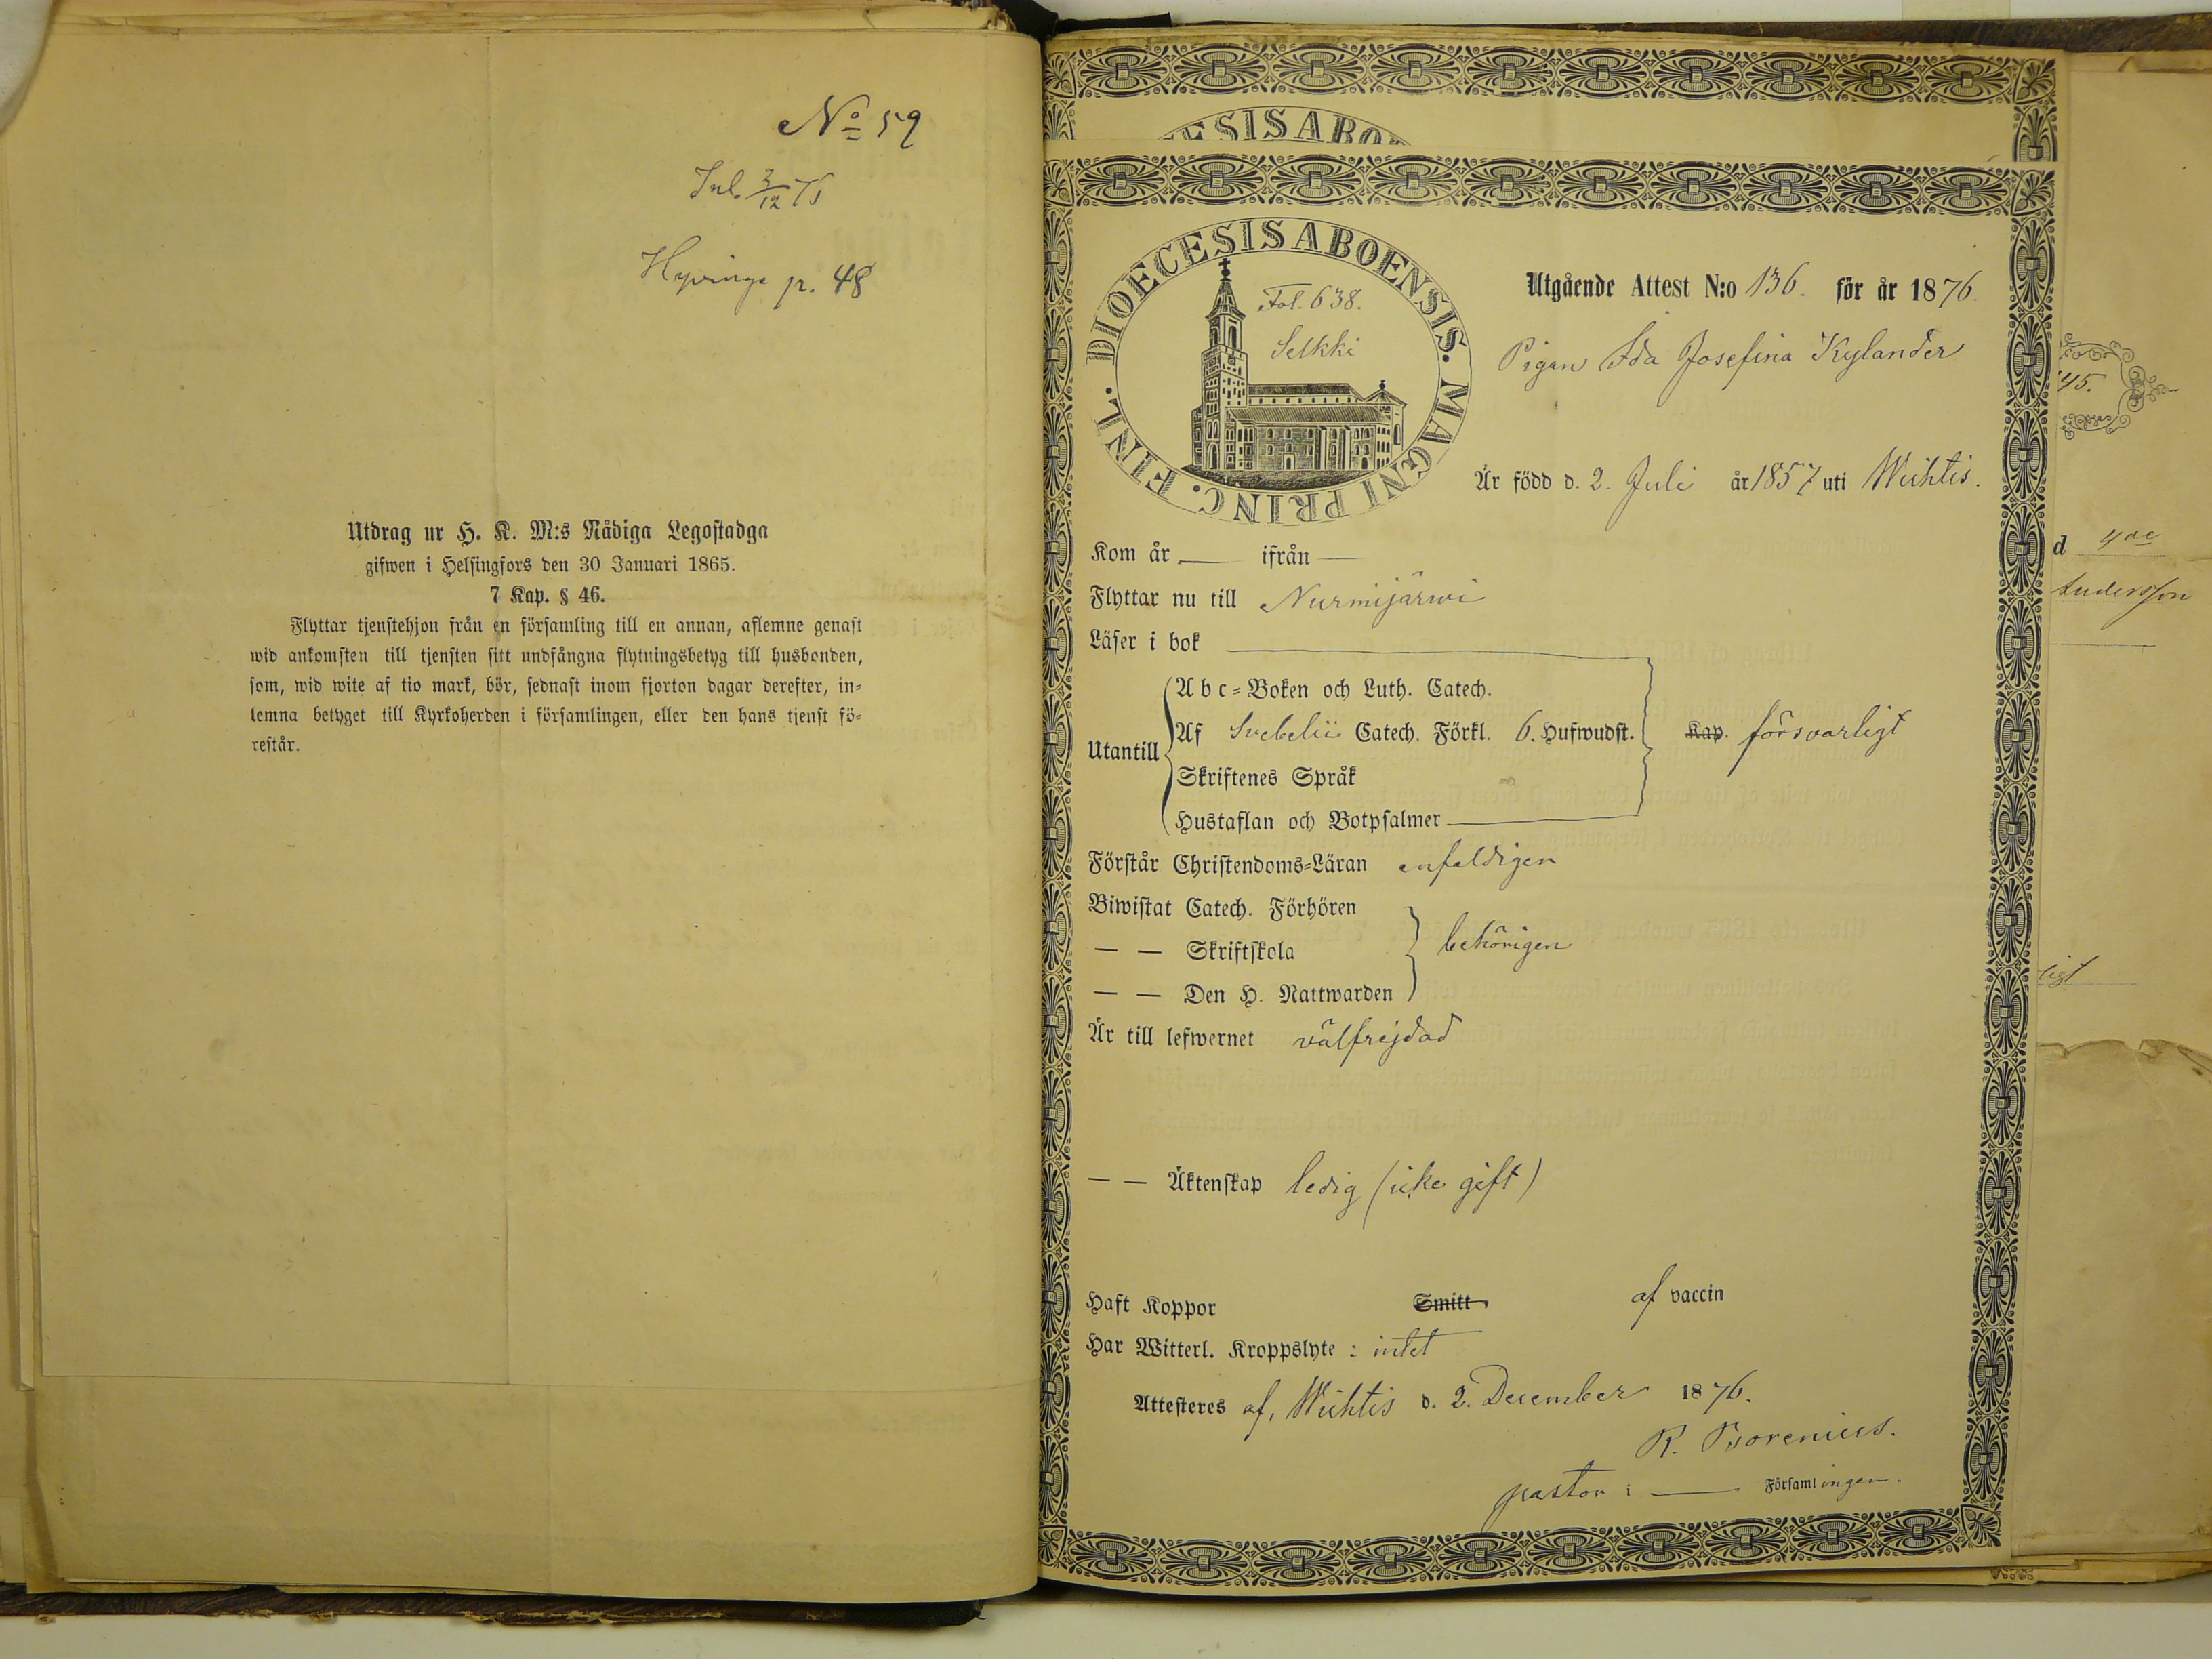 No 59
Inl. 2/12 76
Hyvinge p. 48
Utdrag ur H. K. M:s Nådiga Legostadga
gifwen i Helsingfors den 30 Januari 1865.
7 Kap. § 46.
Flyttar tjenstehjon från en församling till en annan, aflemne genast
wid ankomsten till tjensten sitt undfångna flytningsbetyg till husbonden,
som, wid wite af tio mark, bör, sednast inom fjorton dagar derefter, in=
lemna betyget till Kyrkoherden i församlingen, eller den hans tjenst fö=
restår.
ESIS ABO
DIOECESIS ABOENSIS. MAGNI PRINC. FINL.
Fol. 638.
Selkki
Utgående Attest N:o 136. för år 1876.
Pigan Ida Josefina Kylander
Är född d. 2. Juli år 1857 uti Wichtis.
Kom år — ifrån —
Flyttar nu till Nurmijärwi
Läser i bok
Utantill
Abc=Boken och Luth. Catech.
Af Svebelii Catech. Förkl. 6. Hufwudst. Kap. försvarligt
Skriftenes Språk
Hustaflan och Botpsalmer
Förstår Christendoms=Läran enfaldigen
Biwistat Catech. Förhören
— — Skriftskola behörigen
— — Den H. Nattwarden
Är till lefwernet välfrejdad
— — Äktenskap ledig (icke gift)
Haft Koppor Smitt af vaccin
Har Witterl. Kroppslyte : intet
Attesteres af, Wichtis d. 2. December 1876.
R.Borenius.
pastor i — Församlingen.
45.
d
Andersson
ligt